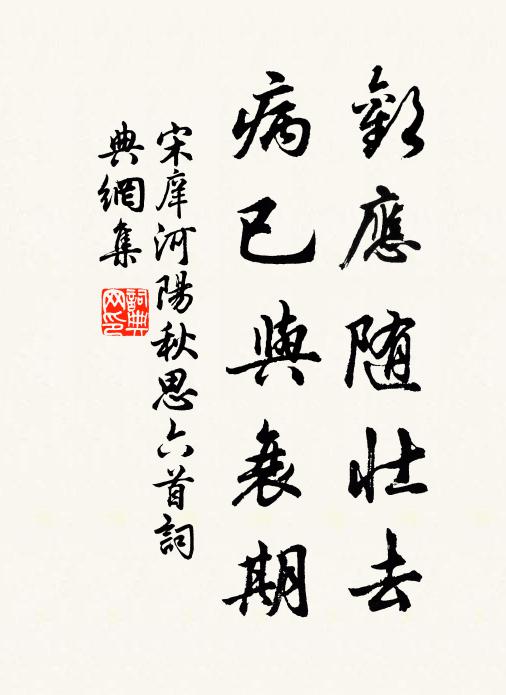 歡應随壯去
病已與衰期
宋庠河陽秋思六首詞
典網集
詞典網印